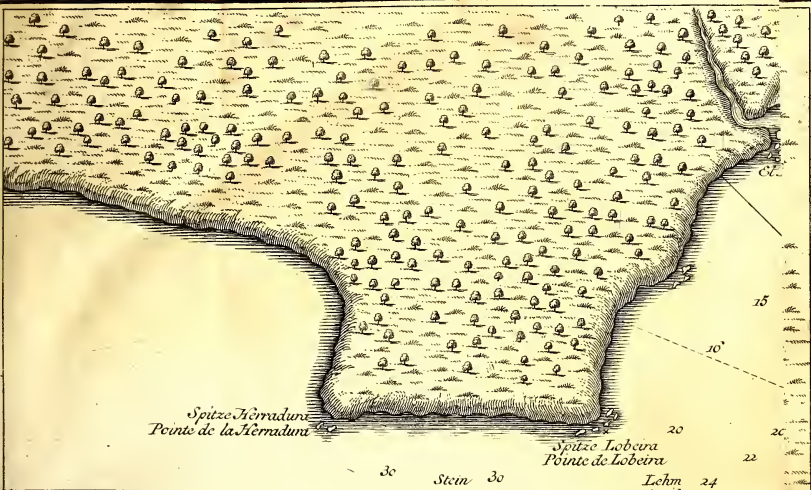 El.
15
10
Spitze Herradura
Pointe de la Herradura
20
Spitze Lobeira
Pointe de Lobeira
22
30
Stein 30
Lehm 24